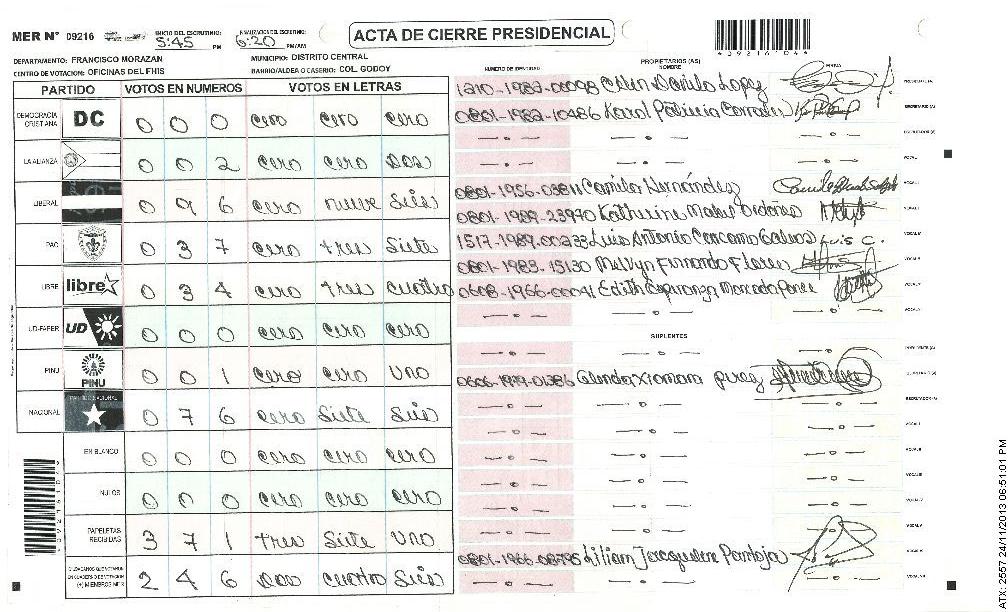 MER N° 09216 INICIO DEL ESCRUTINIO: 5:45 PM FINALIZACION DEL ESCRUTINIO: 6:20 PM/AM ACTA DE CIERRE PRESIDENCIAL
DEPARTAMENTO: FRANCISCO MORAZAN MUNICIPIO: DISTRITO CENTRAL
CENTRO DE VOTACION: OFICINAS DEL FHIS BARRIO/ALDEA O CASERIO: COL. GODOY
PARTIDO VOTOS EN NUMEROS VOTOS EN LETRAS
DEMOCRACIA CRISTIANA DC 0 0 0 cero cero cero
LA ALIANZA 0 0 2 cero cero dos
LIBERAL 0 9 6 cero nueve Seis
PAC 0 3 7 cero tres Siete
LIBRE libre 0 3 4 cero tres cuatro
UD-FAPER UD 0 0 0 cero cero cero
PINU PINU 0 0 1 cero cero uno
NACIONAL PARTIDO NACIONAL 0 7 6 cero Siete Seis
EN BLANCO 0 0 0 cero cero cero
NULOS 0 0 0 cero cero cero
PAPELETAS RECIBIDAS 3 7 1 tres Siete uno
CIUDADANOS QUE VOTARON EN CUADERNO DE VOTACION (+) MIEMBROS MER 2 4 6 dos cuatro Seis
NUMERO DE IDENTIDAD PROPIETARIOS (AS) NOMBRE FIRMA
1210-1983-00098 Danilo Lopez
0801-1982-10486 Karol Patricia
0801-1956-03811 Camila Hernández
0801-1989-23940 Katherine Ordoñes
1517-1989-00233 Luis Antonio Carcamo Luis C.
0801-1983-15130 Melvyn Fernando Flores
0608-1966-00041 Edith Esperanza Ponce
SUPLENTES
0606-1979-01386 Glenda Xiomara
0801-1966-08795 Liliam Jacqueline Pantoja
ATX: 2557 24/11/2013 06:51:01 PM